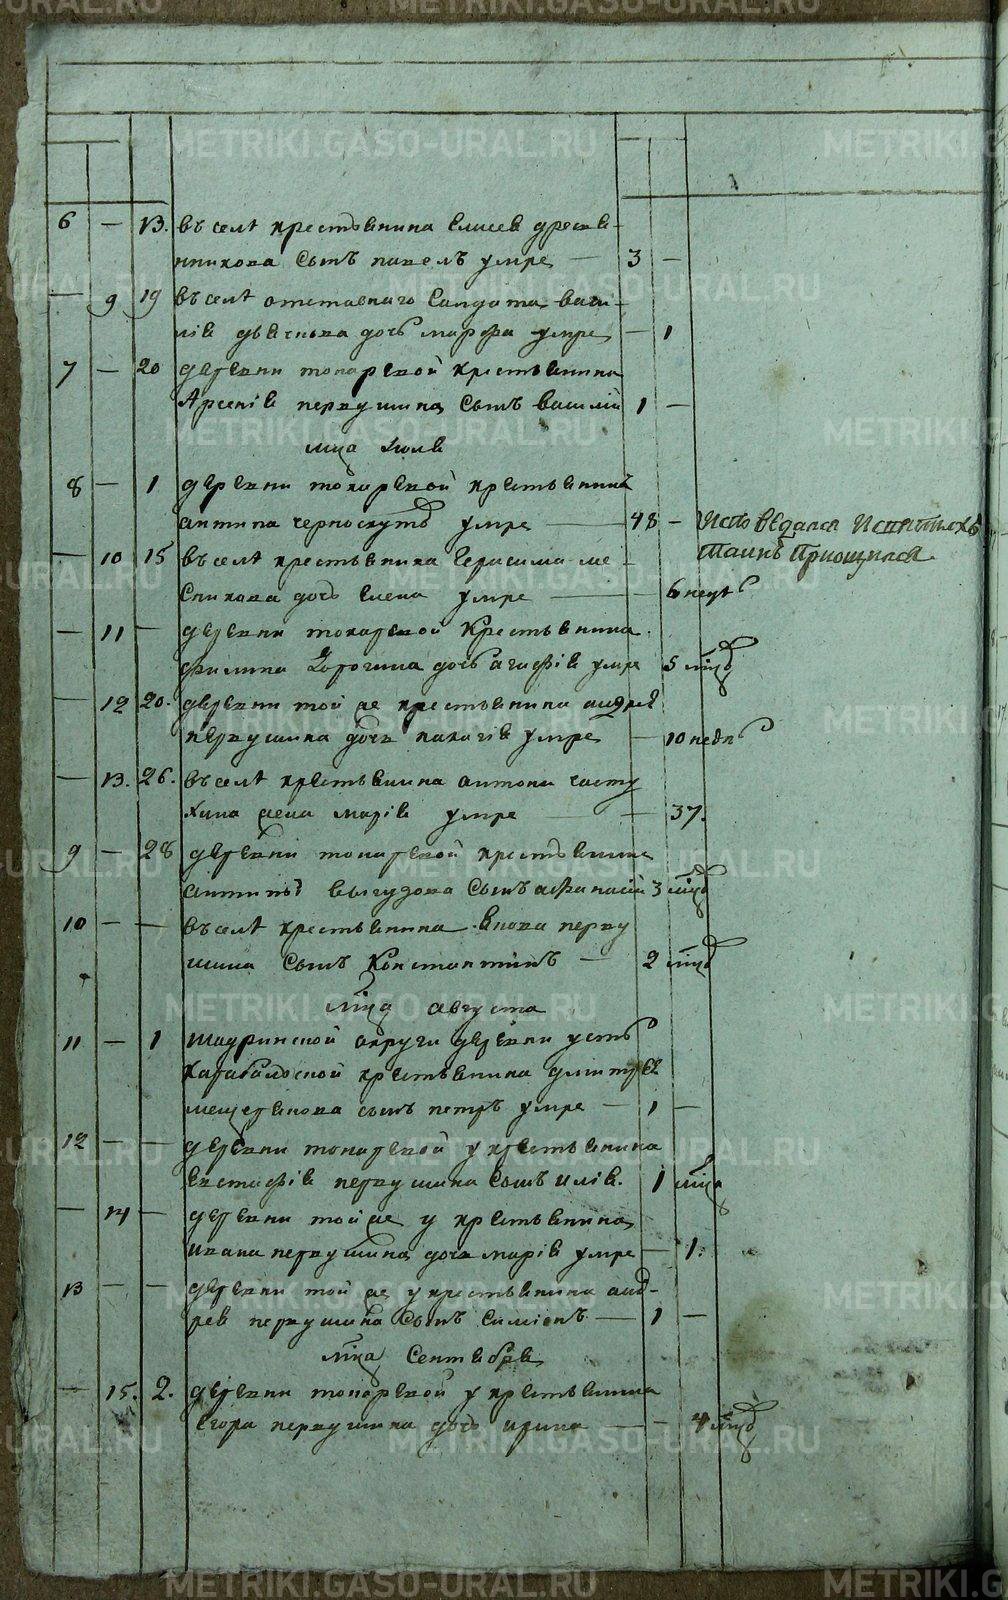 6 — 13. въ селѣ крестьянина Елисея дресвя-
нникова сынъ павелъ умре — 3 —
— 9 19 въ селѣ отставнаго салдата васи-
лія дьячкова дочь марфа умре — 1
7 — 20 деревни токаревой крестьянина
Арсенія первушина сынъ василій 1 —
мца Июля
8 — 1 деревни токаревой крестьянинъ
антипа умре — 48 — Исповедался И святыхъ
таинъ Приощился
— 10 15 въ селѣ крестьянина Герасима ме-
сникова дочь Елена умре — 6 недѣ
— 11 — деревни токаревой Крестьянина
филипа дочь агафія умре 5 мцъ
— 12 20. деревни той же крестьянина андрея
первушина дочь палагія умре — 10 недѣ
— 13. 26. въ селѣ крестьянина антона часту
хина жена марія умре — 37.
9 — 28 деревни токаревой крестьянина
антипы выгузова сынъ афанасій 3 мцъ
10 — — въ селѣ крестьянина перву
шина сынъ константинъ — 2 мцъ
мца августа
11 — 1 шадринской округи деревни усть
крестьянина дмитрея
мещерякова сынъ петръ умре — 1 —
12 — — деревни токаревой у крестьянина
евстафія первушина сынъ илія. 1 мца
— 14 — деревни той же у крестьянина
ивана первушина дочь марія умре — 1.
13 — — деревни той же у крестьянина анд-
рея первушина сынъ симіонъ — 1 —
мца Сентября
— 15. 2. деревни токаревой у крестьянина
Егора первушина дочь ирина — — 4 мцъ
METRIKI.GASO-URAL.RU